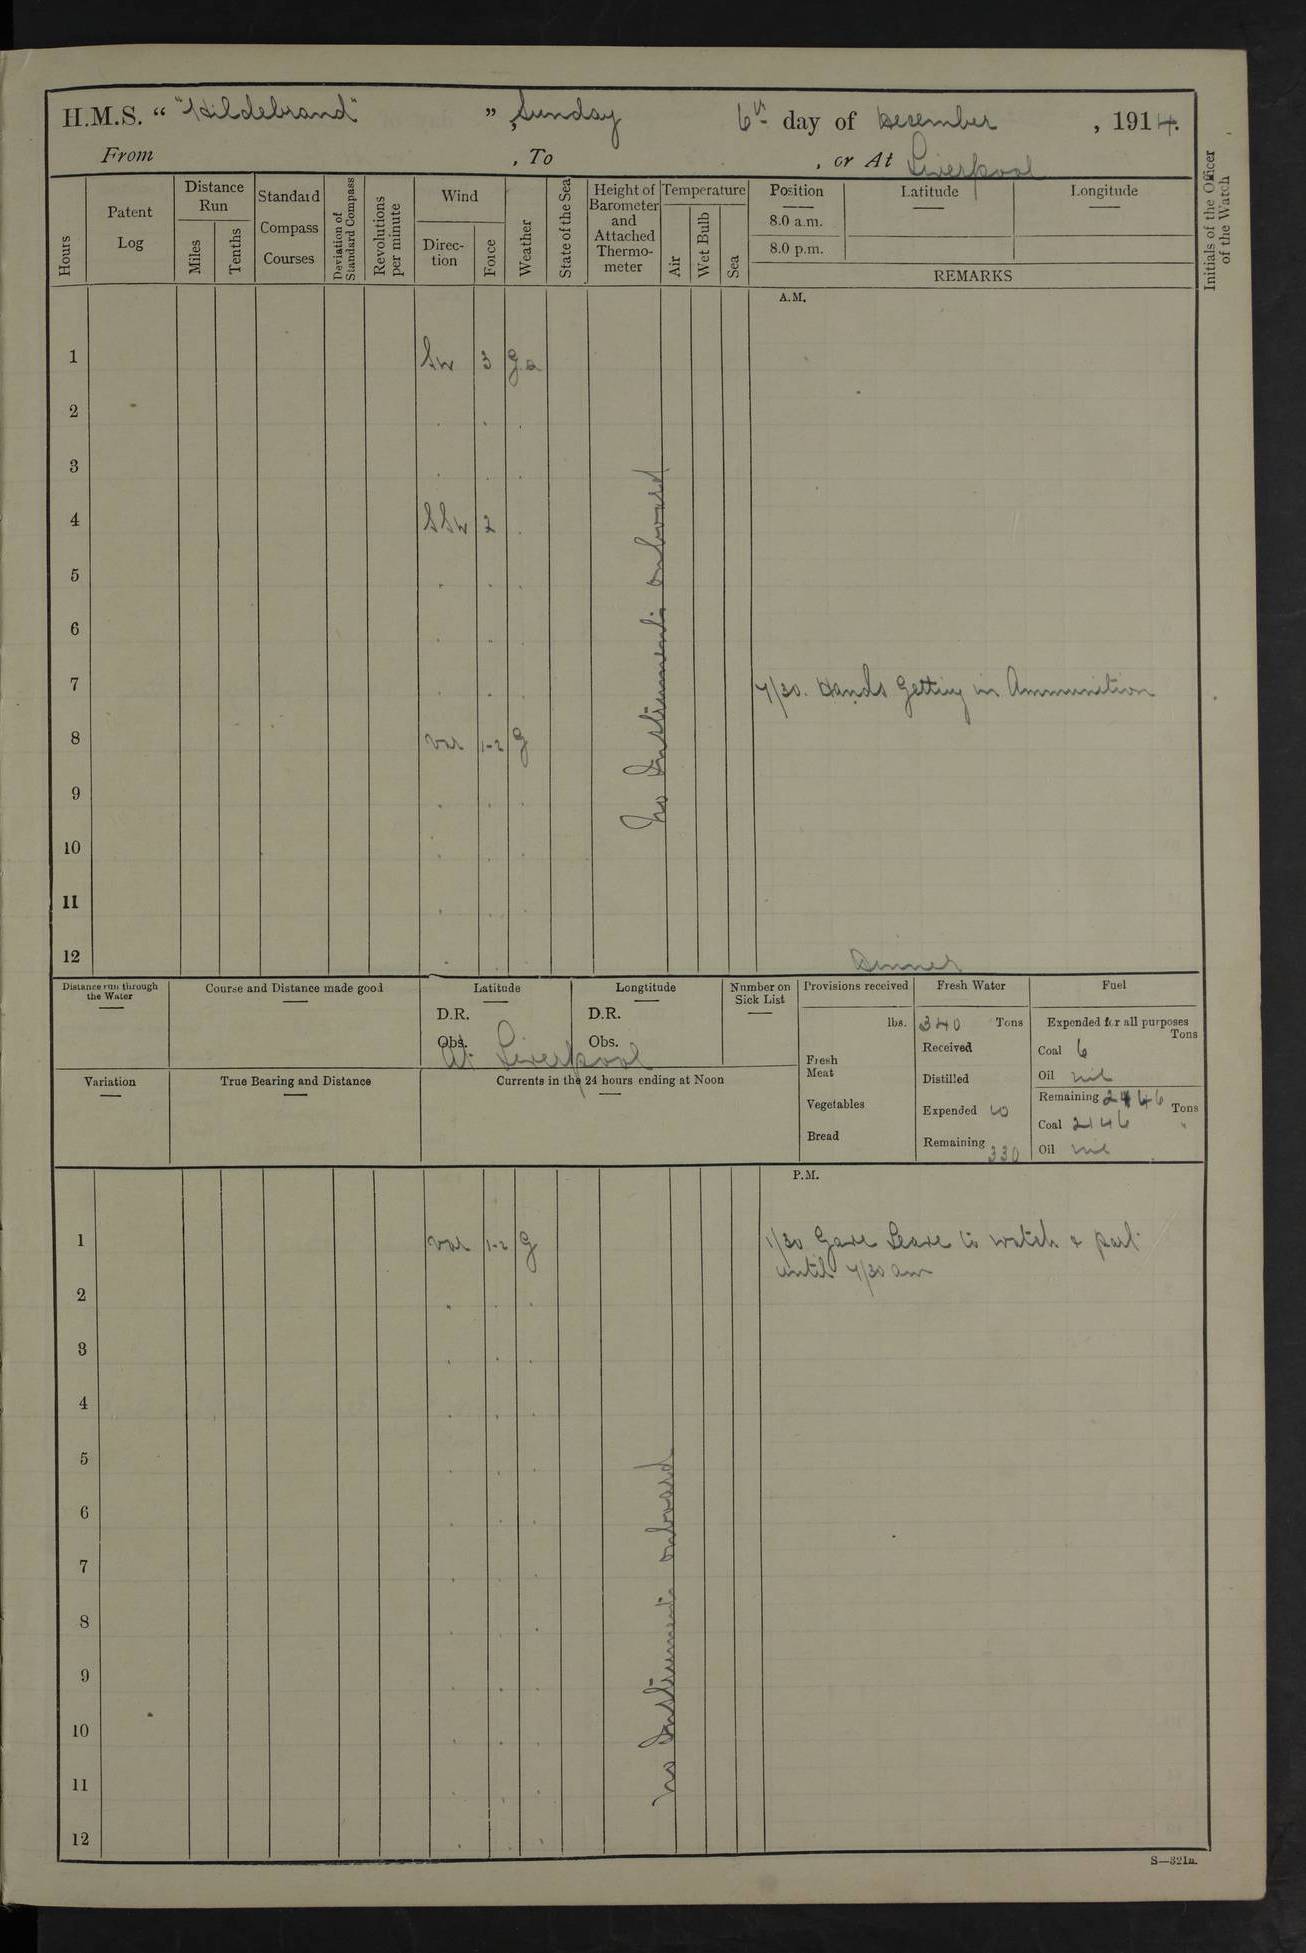 H.M.S. " "Hildebrand" ", Sunday 6th day of December, 1914.
From , To , or At Liverpool
Hours
Patent Log
Distance Run
Miles
Tenths
Standard Compass Courses
Deviation of Standard Compass
Revolutions per minute
Wind
Direc-tion
Force
Weather
State of the Sea
Height of Barometer and Attached Thermo-meter
Temperature
Air
Wet Bulb
Sea
Position
8.0 a.m.
8.0 p.m.
Latitude
Longitude
REMARKS
Initials of the Officer of the Watch
A.M.
1 SW 3 g.
2
3
4 SSW 2
5
6
7 7/30. Hands Getting in Ammunition
8 Var 1-2 g
9
10
11
12 Dinner
No Instruments onboard
Distance run through the Water
Course and Distance made good
Latitude
D.R.
Obs.
Longtitude
D.R.
Obs.
At Liverpool
Number on Sick List
Provisions received
lbs.
Fresh Meat
Vegetables
Bread
Fresh Water
340 Tons
Received
Distilled
Expended 10
Remaining 330
Fuel
Expended for all purposes
Tons
Coal 6
Oil nil
Remaining
Tons
Coal 2146 "
Oil nil
Variation
True Bearing and Distance
Currents in the 24 hours ending at Noon
P.M.
1 Var 1-2 g 1/30 Gave Leave to watch & part
until 7/30 am
2
3
4
5
6
7
8
9
10
11
12
No Instruments onboard
S—321a.